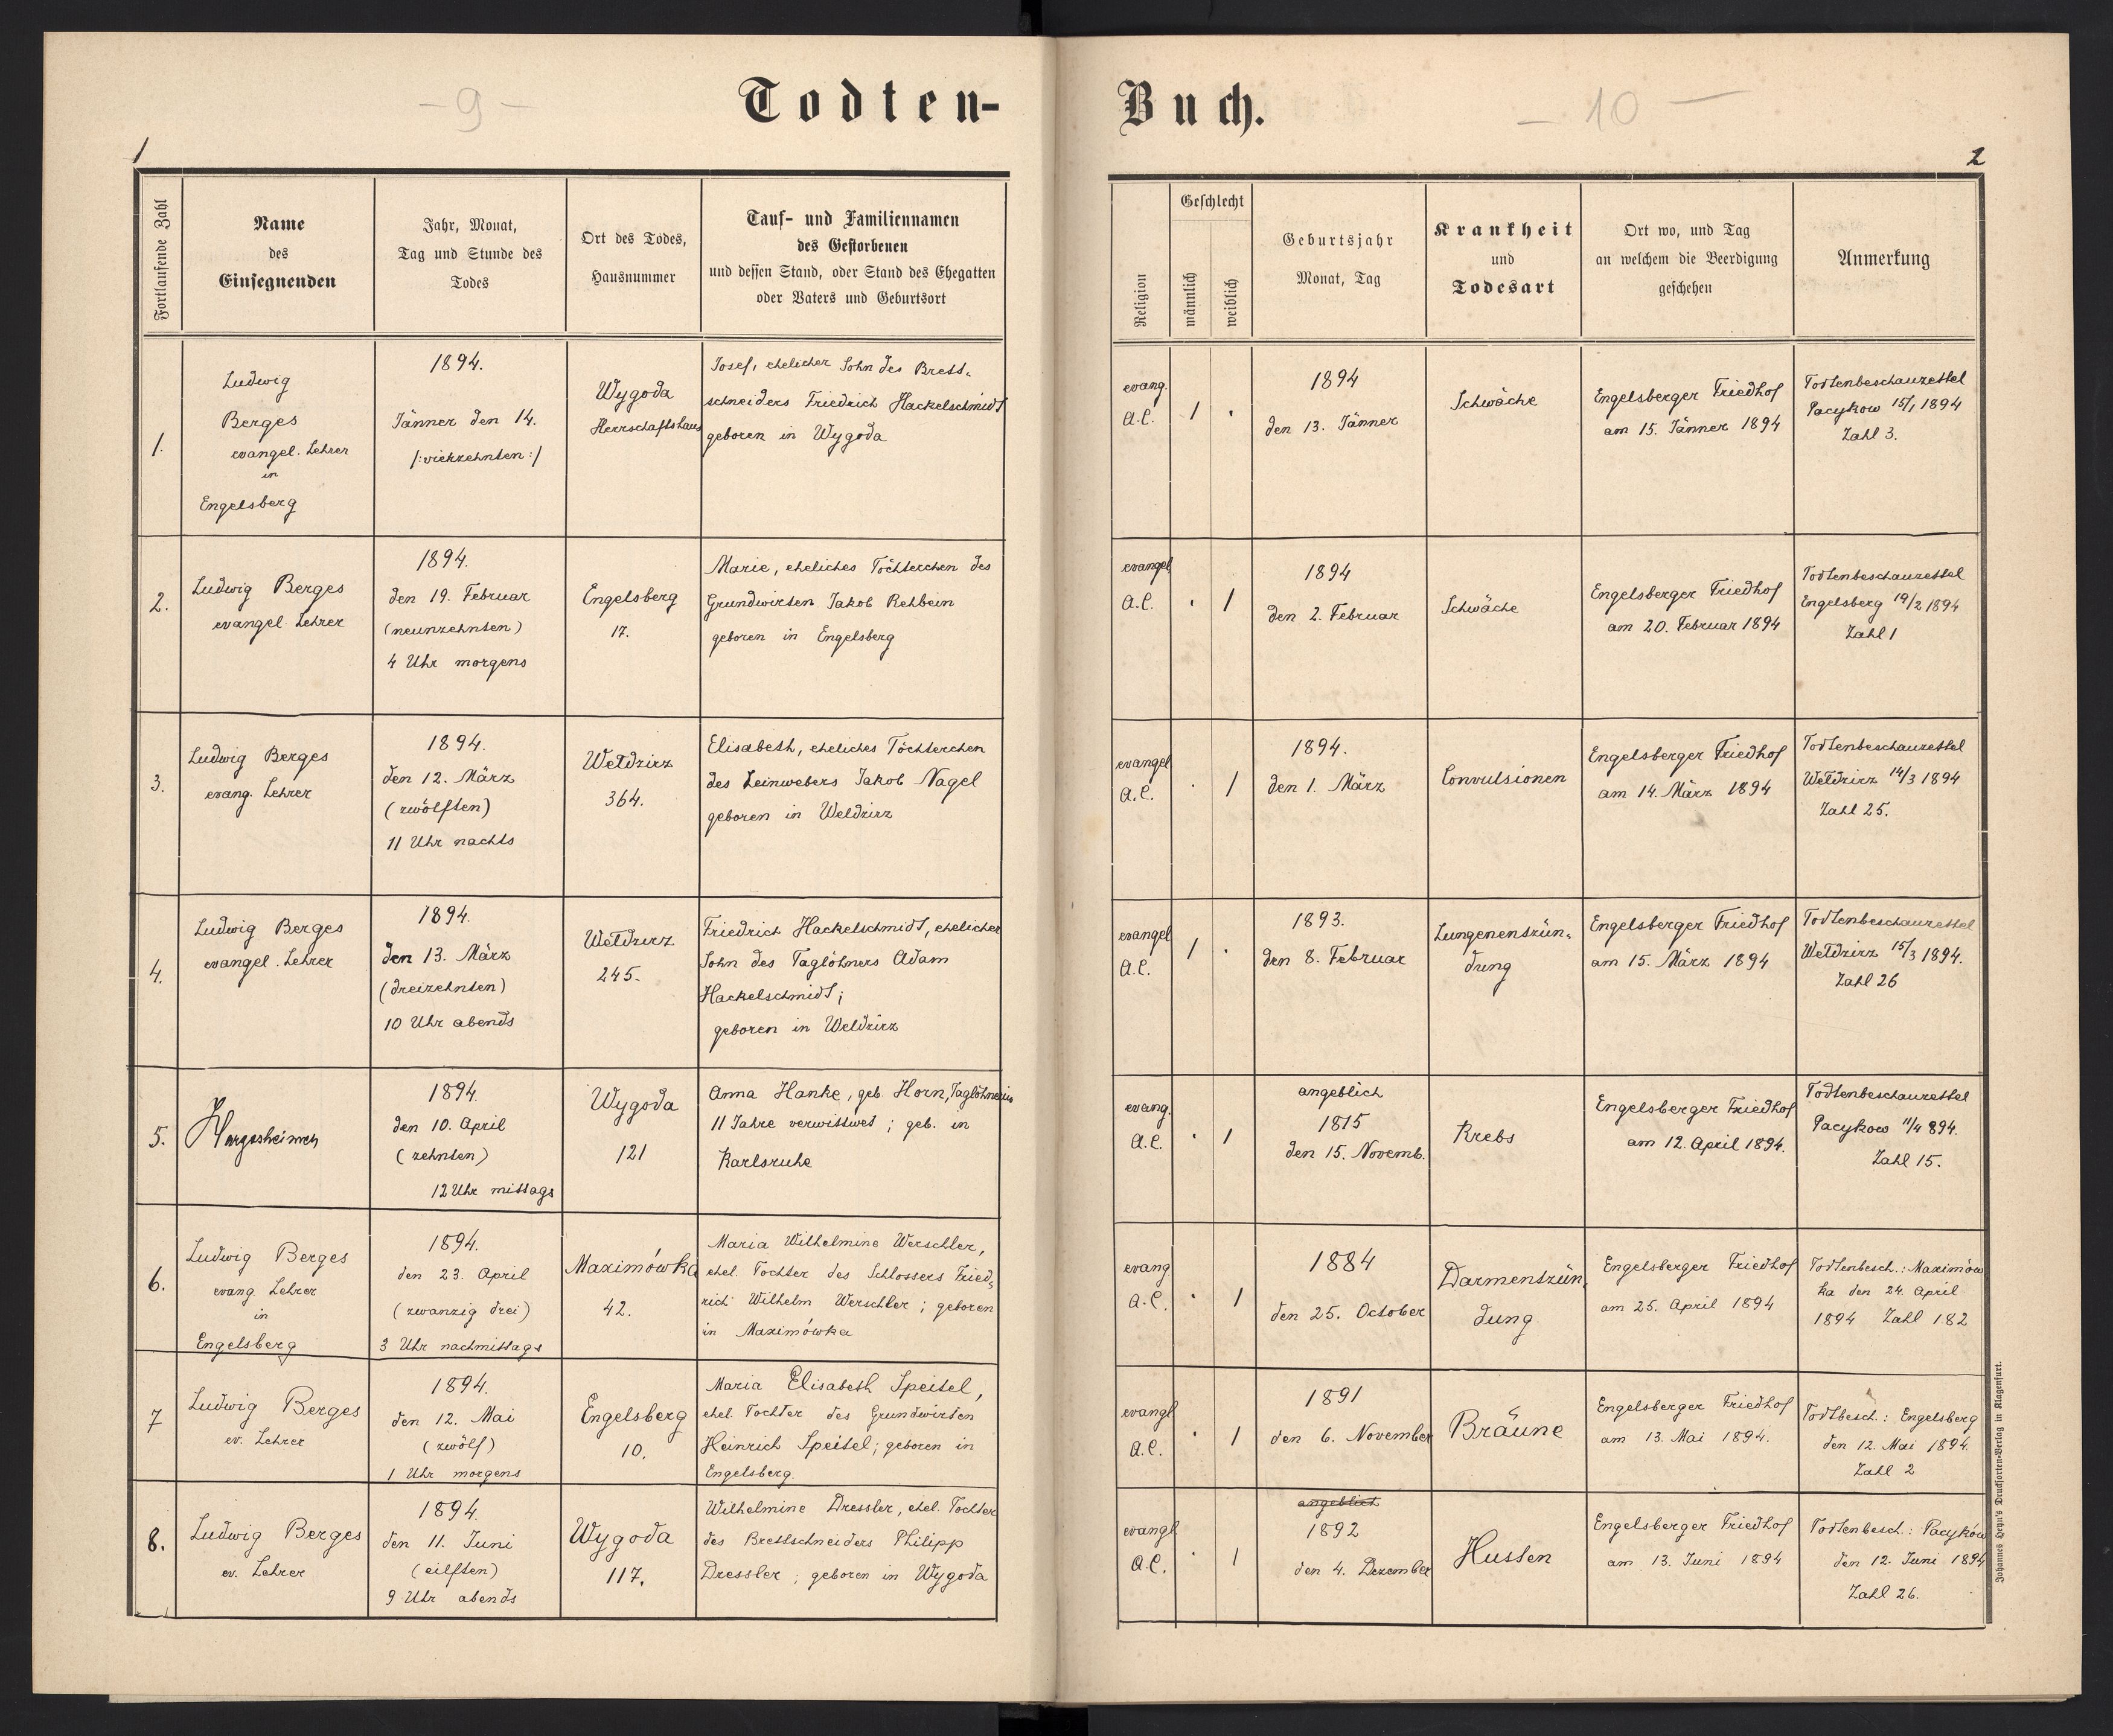 - 9 -
Todten-
Buch.
- 10 -
1
2
Fortlaufende Zahl
Name
des
Einsegnenden
Jahr, Monat,
Tag und Stunde des
Todes
Ort des Todes,
Hausnummer
Tauf- und Familiennamen
des Gestorbenen
und dessen Stand, oder Stand des Ehegatten
oder Vaters und Geburtsort
Religion
Geschlecht
männlich
weiblich
Geburtsjahr
Monat, Tag
Krankheit
und
Todesart
Ort wo, und Tag
an welchem die Beerdigung
geschehen
Anmerkung
1.
Ludwig
Berges
evangel. Lehrer
in
Engelsberg
1894.
Jänner den 14.
/:vierzehnten:/
Wygoda
Herrschaftshaus
Josef, ehelicher Sohn des Brett-
schneiders Friedrich Hackelschmidt
geboren in Wygoda
evang.
A.C.
1
.
1894
den 13. Jänner
Schwäche
Engelsberger Friedhof
am 15. Jänner 1894
Todtenbeschauzettel
Pacykow 15/1 1894
Zahl 3.
2.
Ludwig Berges
evangel. Lehrer
1894.
den 19. Februar
(neunzehnten)
4 Uhr morgens
Engelsberg
17.
Marie, eheliches Töchterchen des
Grundwirten Jakob Rehbein
geboren in Engelsberg
evangel.
A.C.
.
1
1894
den 2. Februar
Schwäche
Engelsberger Friedhof
am 20. Februar 1894
Todtenbeschauzettel
Engelsberg 19/2 1894
Zahl 1
3.
Ludwig Berges
evang. Lehrer
1894.
den 12. März
(zwölften)
11 Uhr nachts
Weldzirz
364.
Elisabeth, eheliches Töchterchen
des Leinwebers Jakob Nagel
geboren in Weldzirz
evangel
A.C.
.
1
1894.
den 1. März
Convulsionen
Engelsberger Friedhof
am 14. März 1894
Todtenbeschauzettel
Weldzirz 14/3 1894
Zahl 25.
4.
Ludwig Berges
evangel. Lehrer
1894.
den 13. März
(dreizehnten)
10 Uhr abends
Weldzirz
245.
Friedrich Hackelschmidt, ehelicher
Sohn des Taglöhners Adam
Hackelschmidt;
geboren in Weldzirz
evangel
A.C.
1
.
1893.
den 8. Februar
Lungenentzün-
dung
Engelsberger Friedhof
am 15. März 1894
Todtenbeschauzettel
Weldzirz 15/3 1894.
Zahl 26
5.
1894.
den 10. April
(zehnten)
12 Uhr mittags
Wygoda
121
Anna Hanke, geb. Horn, Taglöhnerin
11 Jahre verwittwet; geb. in
Karlsruhe
evang.
A.C.
.
1
angeblich
1815
den 15. Novemb.
Krebs
Engelsberger Friedhof
am 12. April 1894.
Todtenbeschauzettel
Pacykow 11/4 894.
Zahl 15.
6.
Ludwig Berges
evang. Lehrer
in
Engelsberg
1894.
den 23. April
(zwanzig drei)
3 Uhr nachmittags
Maximówka
42.
Maria Wilhelmine Werschler,
ehel. Tochter des Schlossers Fried-
rich Wilhelm Werschler; geboren
in Maximówka
evang
A.C.
.
1
1884
den 25. October
Darmentzün-
dung
Engelsberger Friedhof
am 25. April 1894
Todtenbesch.: Maximów
ka den 24. April
1894 Zahl 182
7
Ludwig Berges
ev. Lehrer
1894.
den 12. Mai
(zwölf)
1 Uhr morgens
Engelsberg
10.
Maria Elisabeth Speitel,
ehel. Tochter des Grundwirten
Heinrich Speitel; geboren in
Engelsberg.
evangl
A.C.
.
1
1891
den 6. November
Bräune
Engelsberger Friedhof
am 13. Mai 1894.
Todtbesch.: Engelsberg
den 12. Mai 1894.
Zahl 2
8.
Ludwig Berges
ev. Lehrer
1894.
den 11. Juni
(eilften)
9 Uhr abends
Wygoda
117.
Wilhelmine Dressler, ehel. Tochter
des Brettschneiders Philipp
Dressler; geboren in Wygoda
evangl
A.C.
.
1
angeblich
1892
den 4. Dezember
Husten
Engelsberger Friedhof
am 13. Juni 1894
Todtenbesch.: Pacyków
den 12. Juni 1894
Zahl 26.
Johannes Heyn's Drucksorten-Verlag in Klagenfurt.